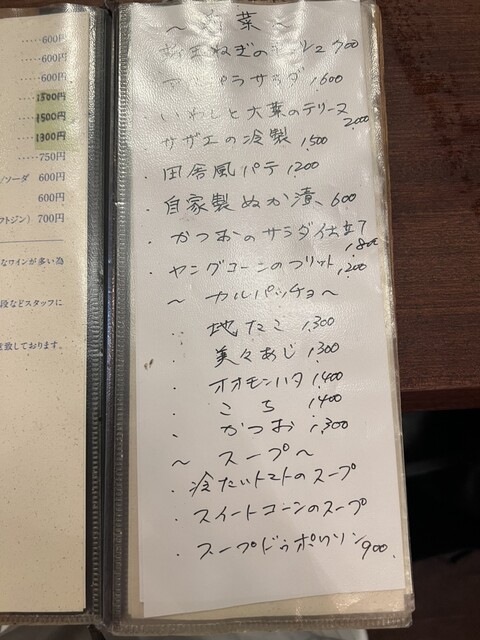 ‥‥‥600円
‥‥‥600円
‥‥‥600円
‥‥‥1500円
‥‥‥1500円
‥‥‥1300円
‥‥‥750円
/ソーダ 600円
600円
フトジン) 700円
なワインが多い為
段などスタッフに
致しております。
～前菜～
新玉ねぎのムース 700
アスパラサラダ 1,600
・いわしと大葉のテリーヌ 2,000
サザエの冷製 1,500
・田舎風パテ 1,200
・自家製ぬか漬、600
・かつおのサラダ仕立て 1,800
・ヤングコーンのフリット 1,200
～カルパッチョ～
・地たこ 1,300
・美々あじ 1,300
・オオモンハタ 1,400
・こち 1,400
・かつお 1,300
～スープ～
・冷たいトマトのスープ
・スイートコーンのスープ
・スープドゥポワソン 900.